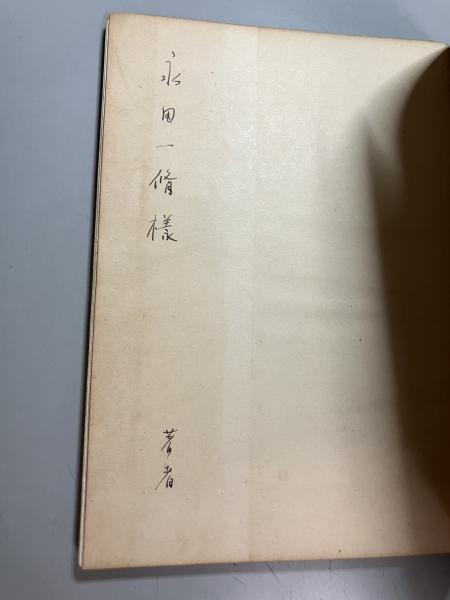 永田一脩様
著者